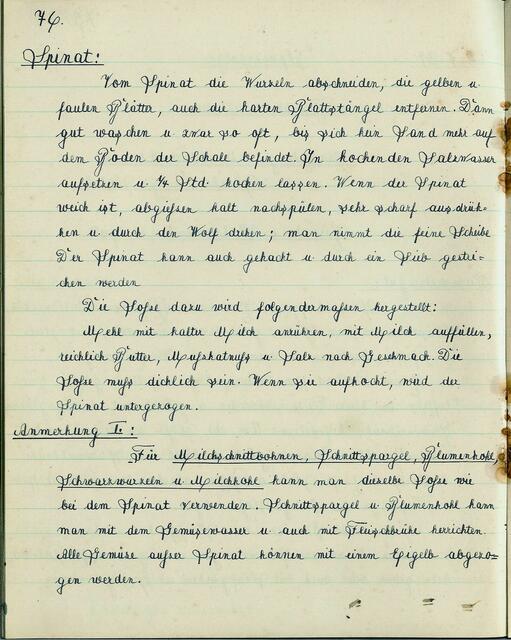 76.
Spinat:
Vom Spinat die Wurzeln abschneiden, die gelben u.
faulen Blätter, auch die harten Blattstängel entfernen. Dann
gut waschen u. zwar so oft, bis sich kein Sand mehr auf
dem Boden der Schale befindet. In kochenden Salzwasser
aufsetzen u. 1/4 Std. kochen lassen. Wenn der Spinat
weich ist, abgießen kalt nachspülen, sehr scharf ausdrük-
ken u. durch den Wolf drehen; man nimmt die feine Scheibe
Der Spinat kann auch gehackt u. durch ein Sieb gestri-
chen werden
Die Soße dazu wird folgendermaßen hergestellt:
Mehl mit kalter Milch anrühren, mit Milch auffüllen,
reichlich Butter, Muskatnuß u. Salz nach Geschmack. Die
Soße muß dicklich sein. Wenn sie aufkocht, wird der
Spinat untergezogen.
Anmerkung I.:
Für Milchschnittbohnen, Schnittspargel, Blumenkohl,
Schwarzwurzeln u. Milchkohl kann man dieselbe Soße wie
bei dem Spinat verwenden. Schnittspargel u. Blumenkohl kann
man mit dem Gemüsewasser u. auch mit Fleischbrühe herrichten.
Alle Gemüse außer Spinat können mit einem Eigelb abgezo=
gen werden.